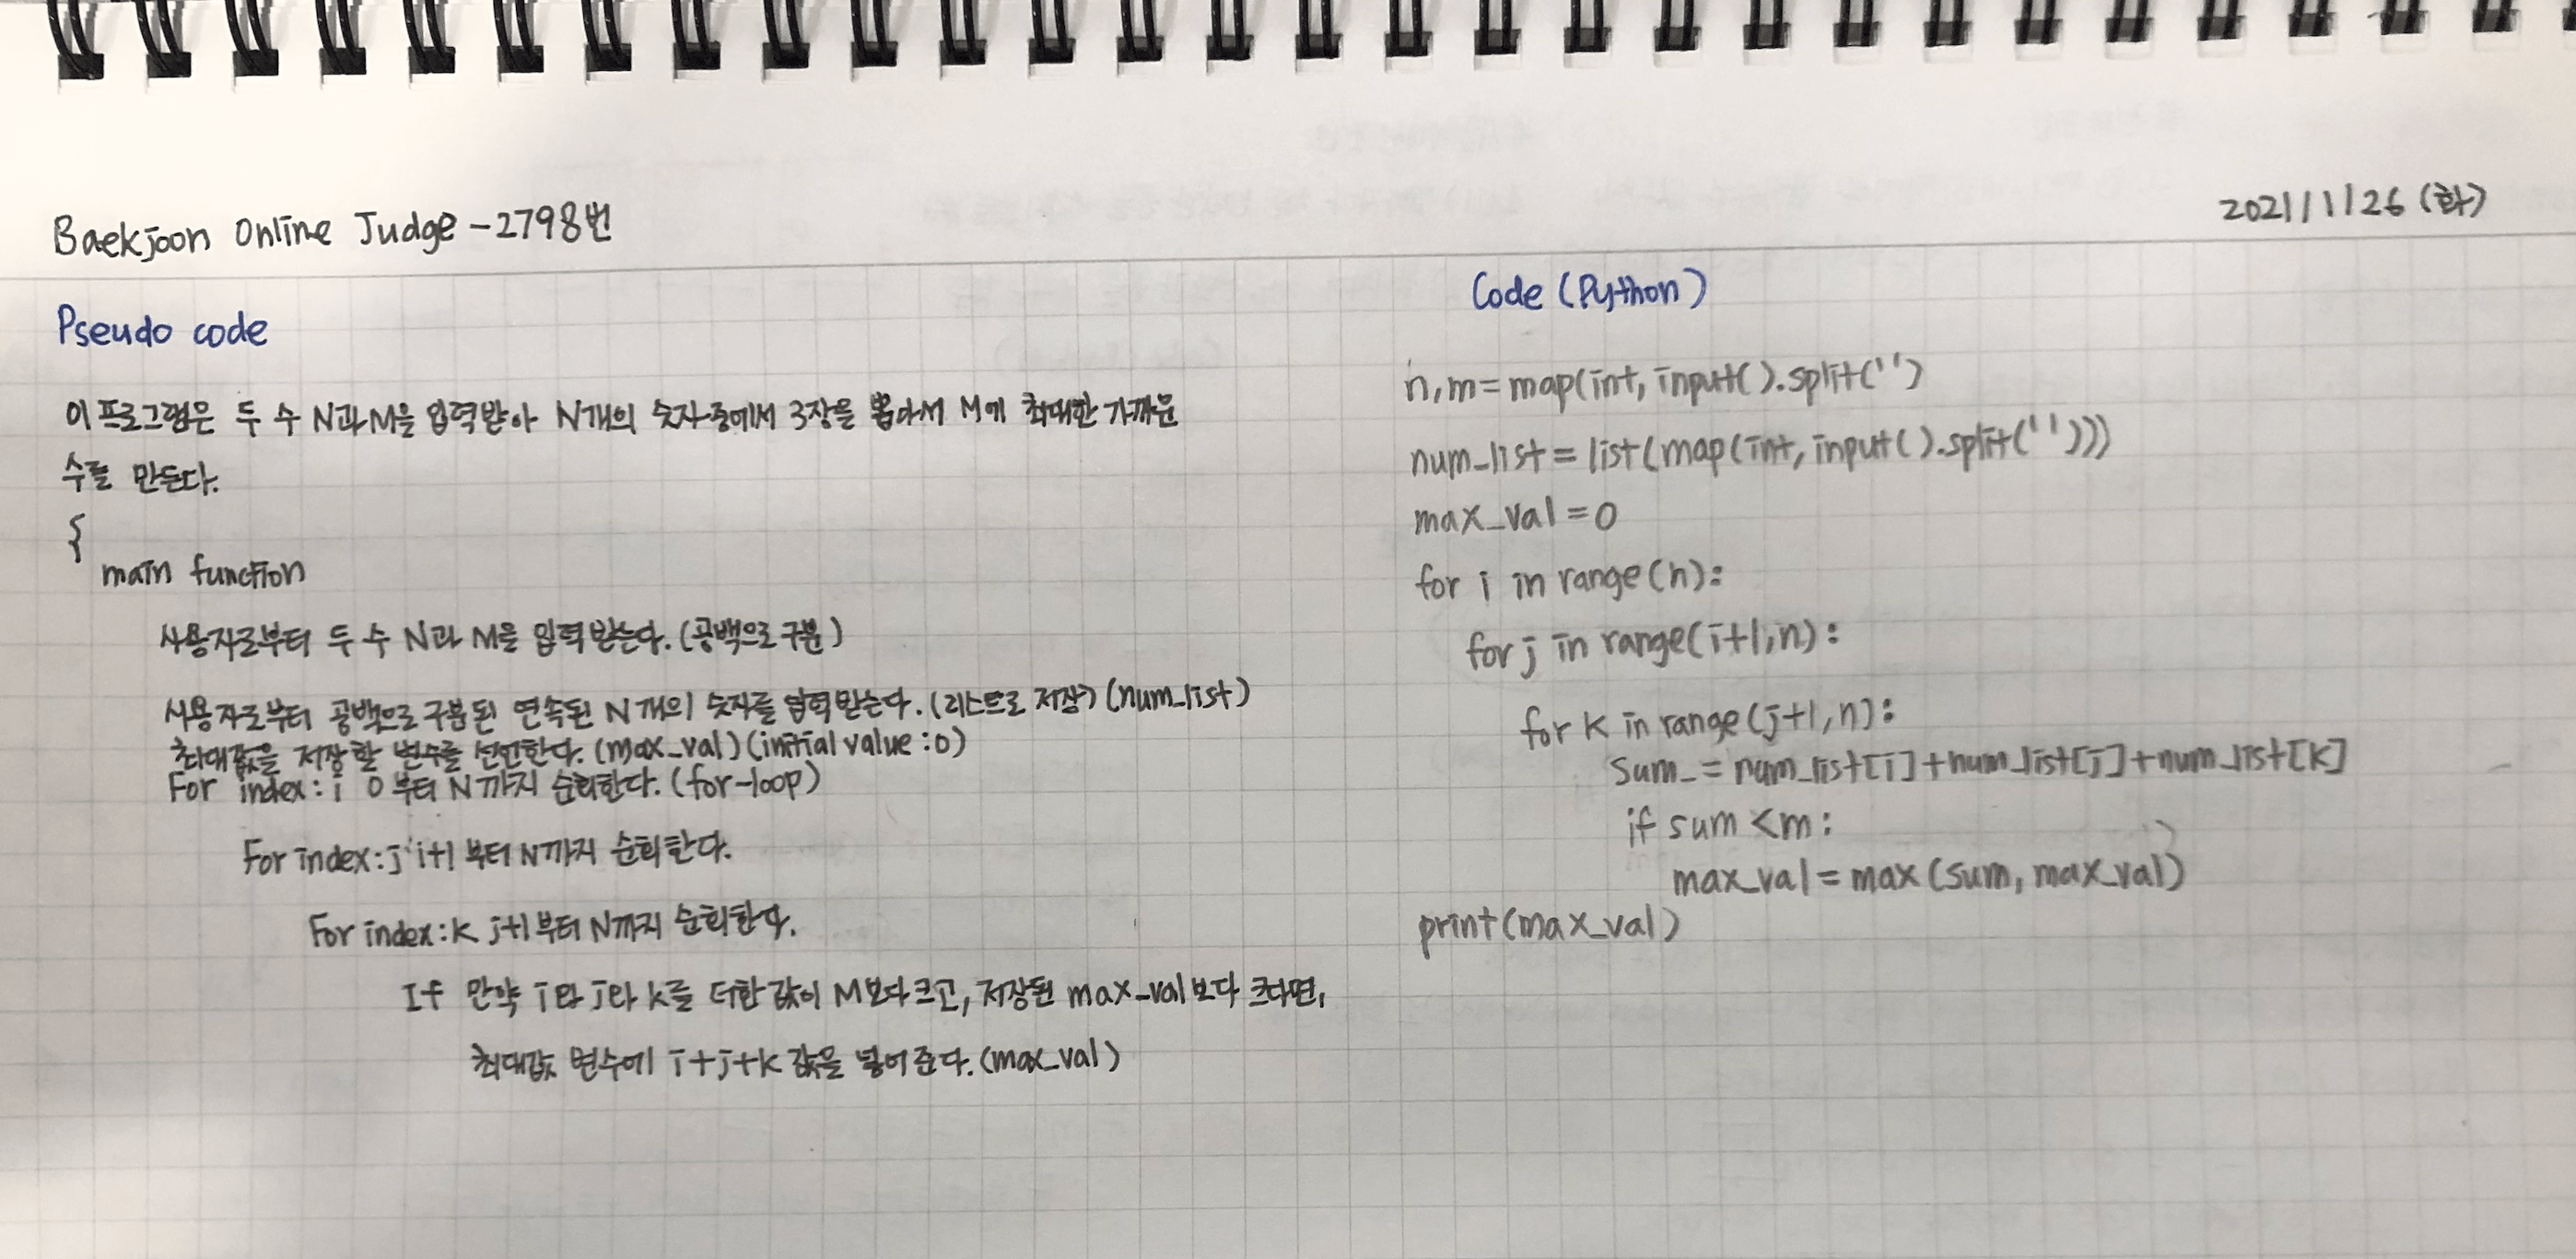 Baekjoon Online Judge - 2798번
2021/1/26 (화)
Pseudo code
이 프로그램은 두 수 N과 M을 입력받아 N개의 숫자 중에서 3장을 뽑아서 M에 최대한 가까운
수를 만든다.
{
main function
사용자로부터 두 수 N과 M을 입력 받는다. (공백으로 구분)
사용자로부터 공백으로 구분된 연속된 N개의 숫자를 입력 받는다. (리스트로 저장) (num_list)
최대값을 저장할 변수를 선언한다. (max_val) (initial value : 0)
For index : i 0부터 N까지 순회한다. (for-loop)
For index : j i+1 부터 N까지 순회한다.
For index : k j+1 부터 N까지 순회한다.
If 만약 i와 j와 k를 더한 값이 M보다 크고, 저장된 max_val 보다 크다면,
최대값 변수에 i+j+k 값을 넣어 준다. (max_val)
Code (Python)
n, m = map(int, input().split(' ')
num_list = list(map(int, input().split(' ')))
max_val = 0
for i in range(n):
for j in range(i+1, n):
for k in range(j+1, n):
sum_ = num_list[i] + num_list[j] + num_list[k]
if sum < m:
max_val = max(sum, max_val)
print(max_val)